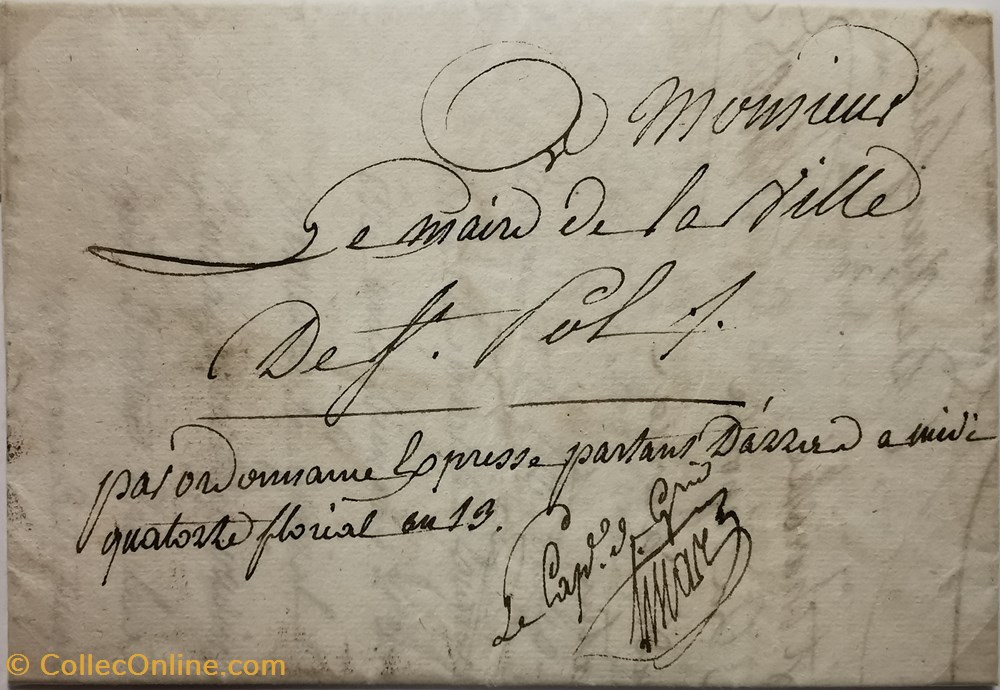 A Monsieur
Le maire de la Ville
De St. Pol /.
par ordonnance Expresse partant D'arras a midi
quatorze floréal an 13.
Le Cap.e de Gend.
© CollecOnline.com